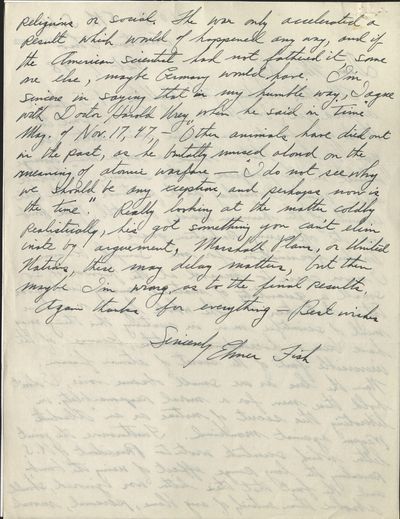 religious or social. The war only accelerated a
result which would of happened any way, and if
the American scientist had not fathered it some
one else, maybe Germany would have. I'm
sincere in saying that in my humble way, I agree
with Doctor Harold Urey, when he said in Time
Mag. of Nov. 17, 47, — "Other animals have died out
in the past, as he brutally mused aloud on the
meaning of atomic warfare — "I do not see why
we should be any exception, and perhaps now is
the time." Really looking at the matter coldly
realistically, he's got something you can't elim
inate by argument, Marshall Plans, or United
Nations, these may delay matters, but then
maybe I'm wrong as to the final results.
Again thanks for everything — Best wishes
Sincerely
Elmer Fish